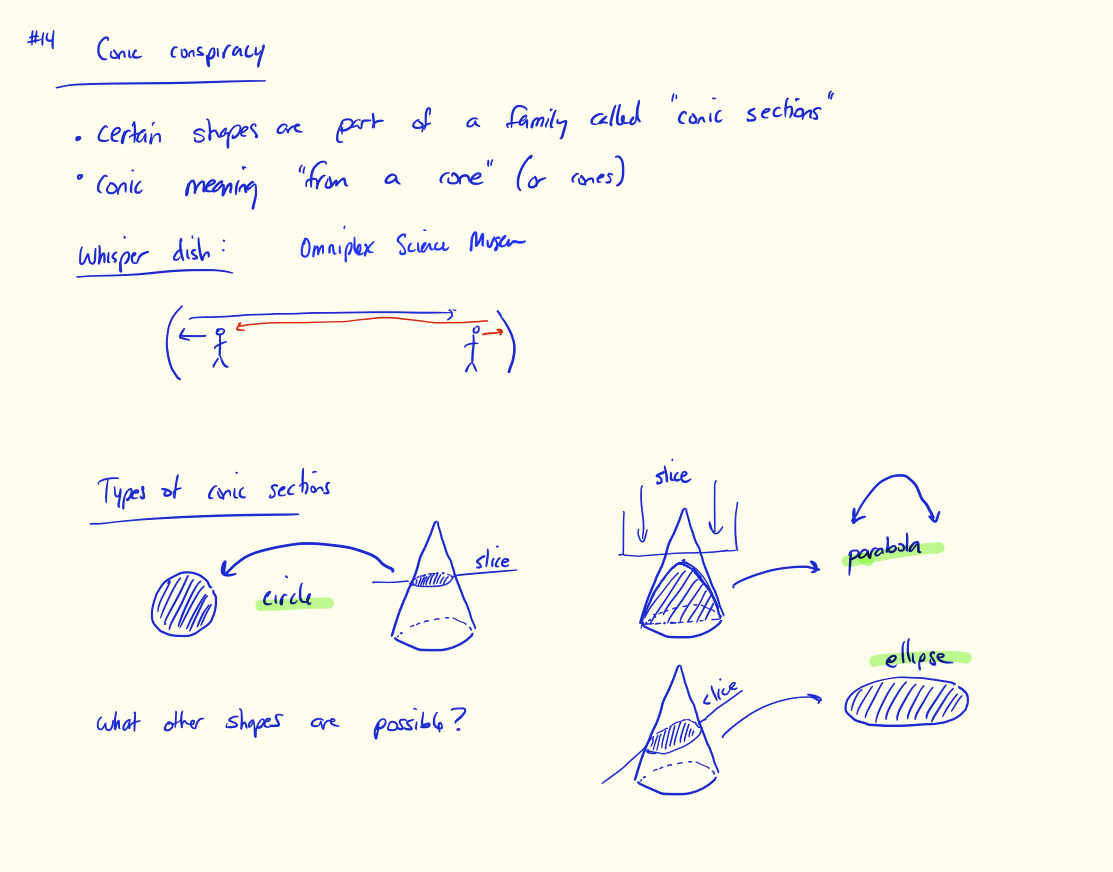 #14 Conic conspiracy
• certain shapes are part of a family called "conic sections"
• Conic meaning "from a cone" (or cones)
Whisper dish: Omniplex Science Museum
Types of conic sections
slice
parabola
slice
circle
ellipse
slice
What other shapes are possible?